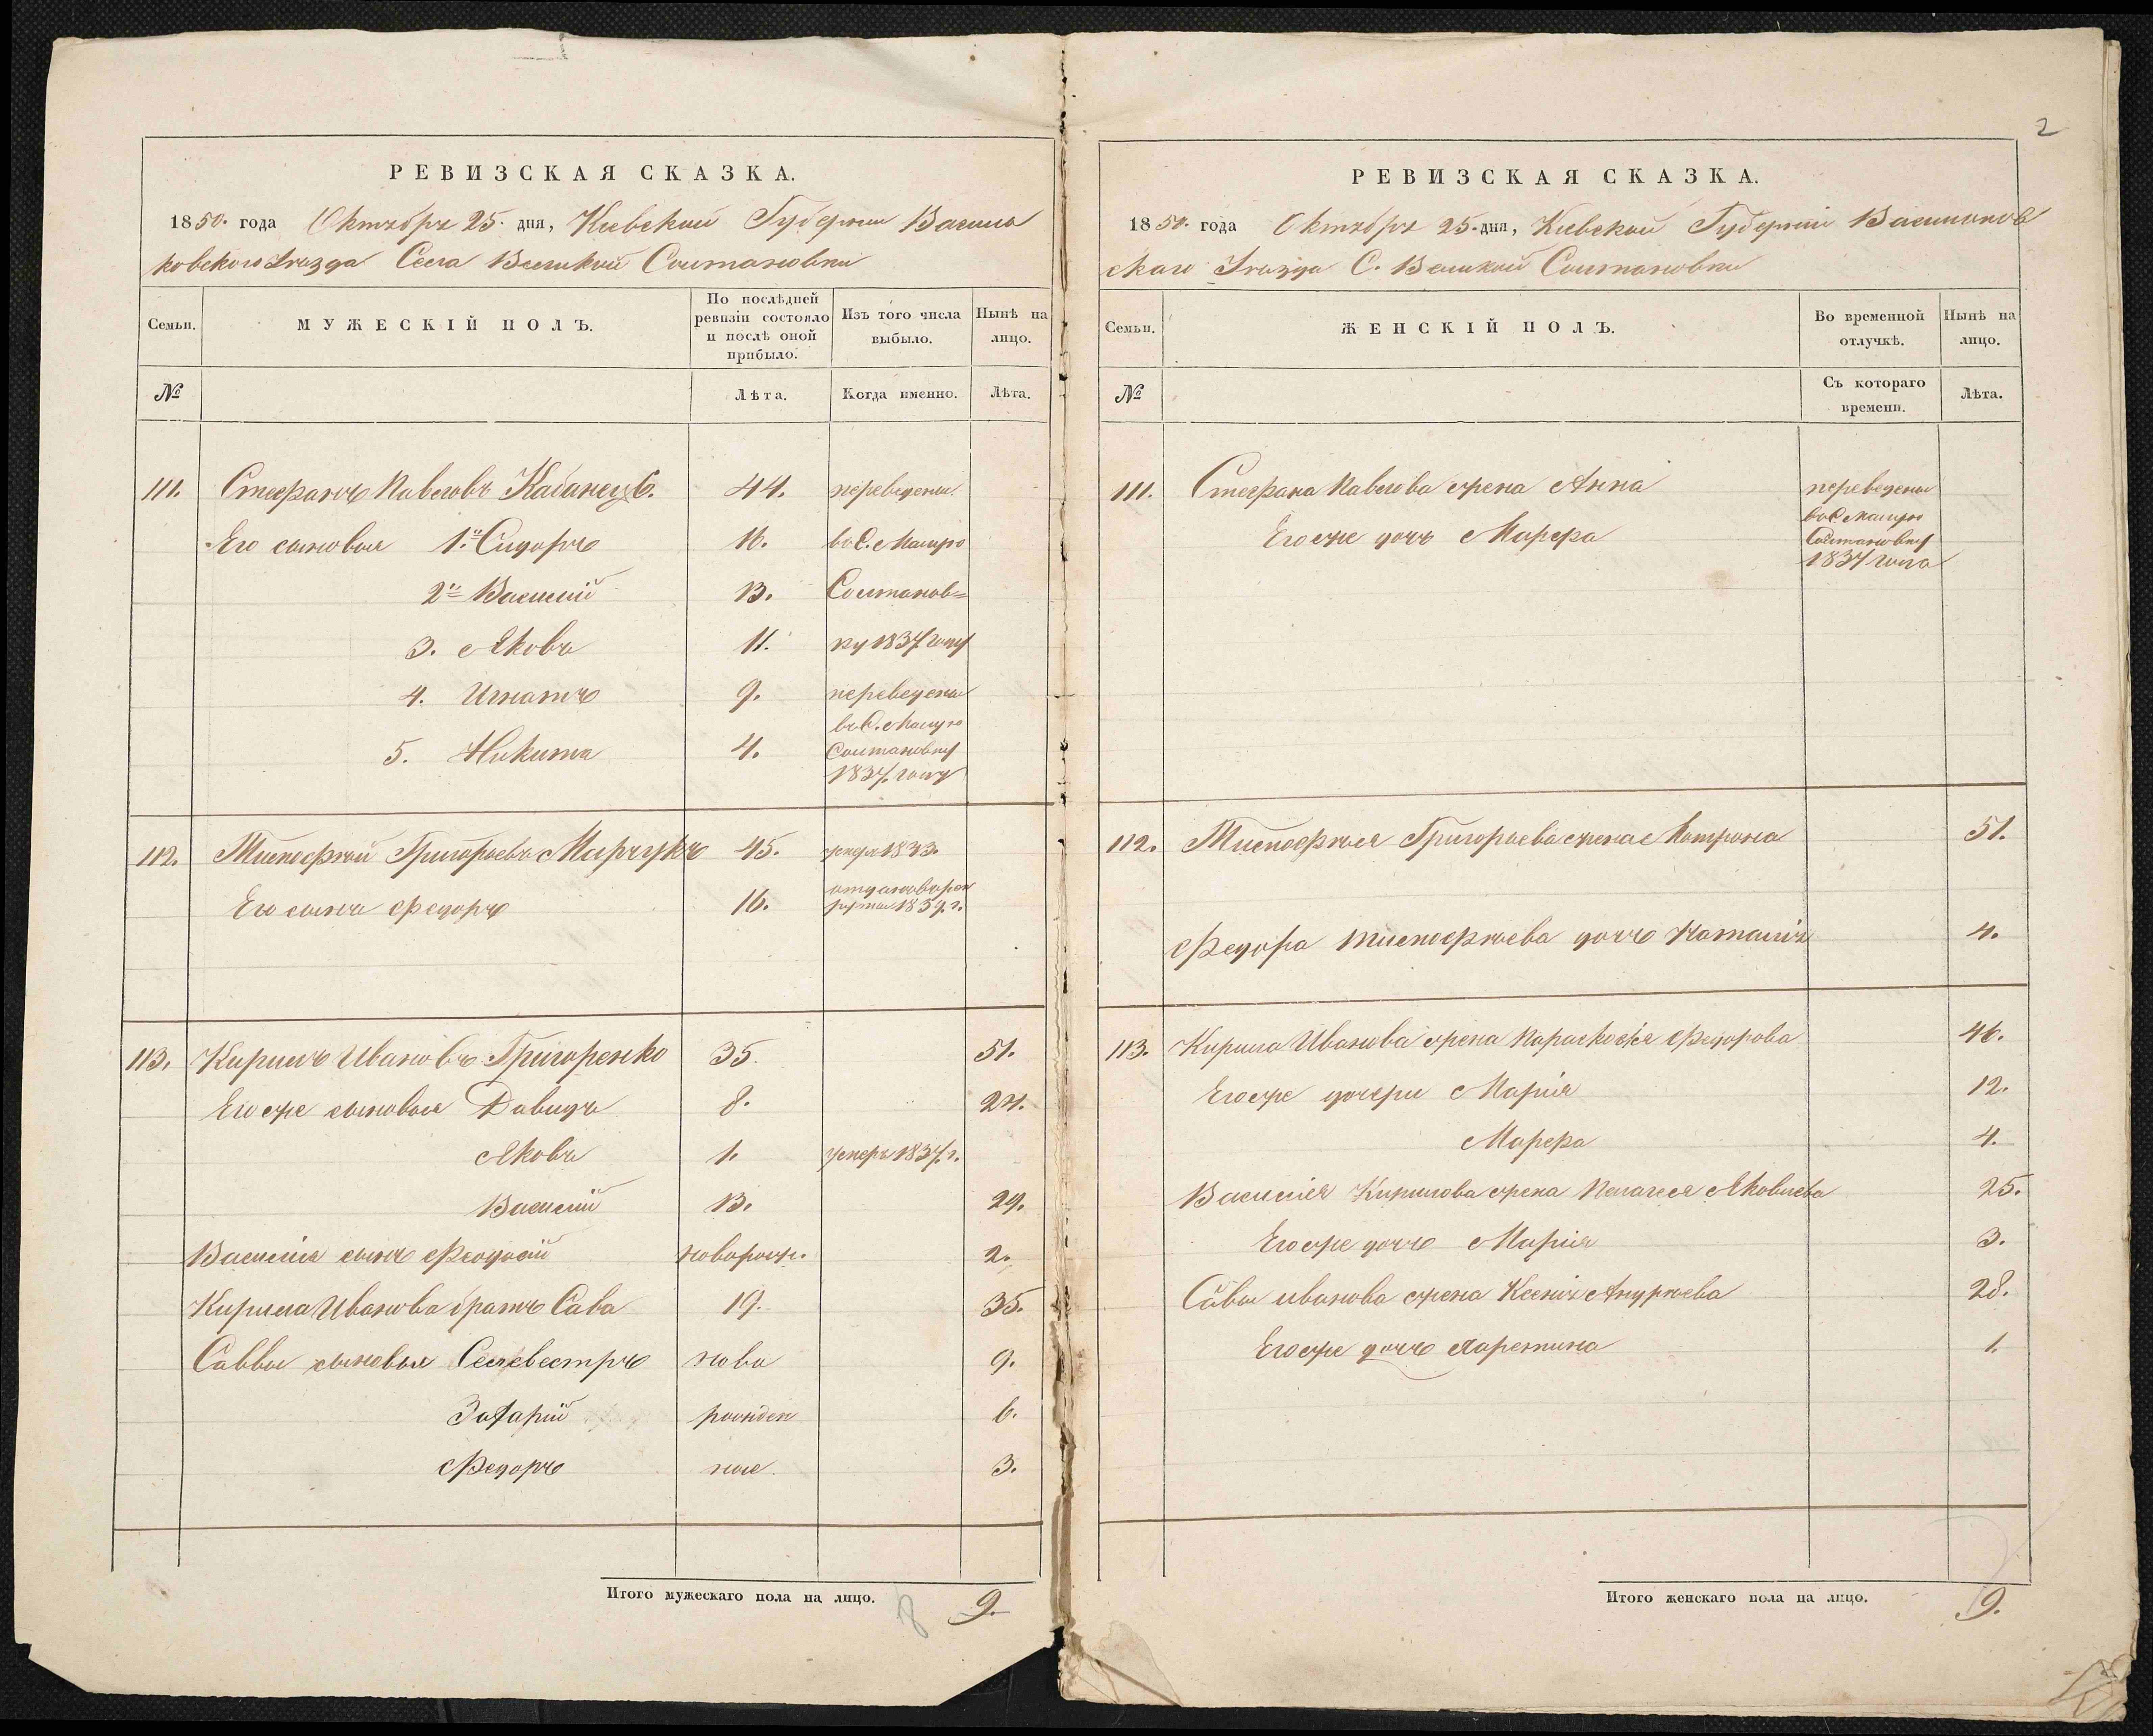 2
РЕВИЗСКАЯ СКАЗКА.
1850. года Октября 25. дня, Киевской Губернии Василь
ковского Уезда Села Великой Солтановки
Семьи.
МУЖЕСКІЙ ПОЛЪ.
По послѣдней ревизіи состояло и послѣ оной прибыло.
Изъ того числа выбыло.
Нынѣ на лицо.
№
Лѣта.
Когда именно.
Лѣта.
111. Стефанъ Павловъ 44. переведены
Его сыновья 1.й Сидоръ 16. въ С. Малую
2й Василій 13. Солтанов=
3. Яковъ 11. ку 1837 году
4. Игнатъ 9. переведены
въ С. Малую
5. Никита 4. Солтановку
1837. году
112. Тимофтій Григорьевъ Марчукъ 45. умеръ 1843.
Его сынъ Федоръ 16. отдан в рек
руты г.
113. Кирилъ Ивановъ Григоренко 35. 51.
Его же сыновья Давидъ 8. 24.
Яковъ 1. умеръ 1837. г.
Василій 13. 29.
Василія сынъ Феодосій новорож. 2.
Кирила Иванова братъ Сава 19. 35.
Саввы сыновья Селевестръ ново 9.
Захарій рожден 6.
Федоръ ные 3.
Итого мужескаго пола на лицо. 8 9.
РЕВИЗСКАЯ СКАЗКА.
1850. года Октября 25. дня, Киевской Губерніи Васильков
скаго Уезда С. Великой Солтановки
Семьи.
ЖЕНСКІЙ ПОЛЪ.
Во временной отлучкѣ.
Нынѣ на лицо.
№
Съ котораго времени.
Лѣта.
111. Стефана Павлова жена Анна переведены
въ С. Малую
Его же дочь Марфа Солтановку
1837 года
112. Григорьева жена Мотрона 51.
Федора дочь Наталія 4.
113. Кирила Иванова жена Параскосія Федорова 46.
Его же дочери Марія 12.
Марфа 4.
Василія Кирилова жена Пелагея Яковлева 25.
Его же дочь Марія 3.
Савы иванова жена Ксенія Андреева 28.
Его же дочь 1.
Итого женскаго пола на лицо. 9.